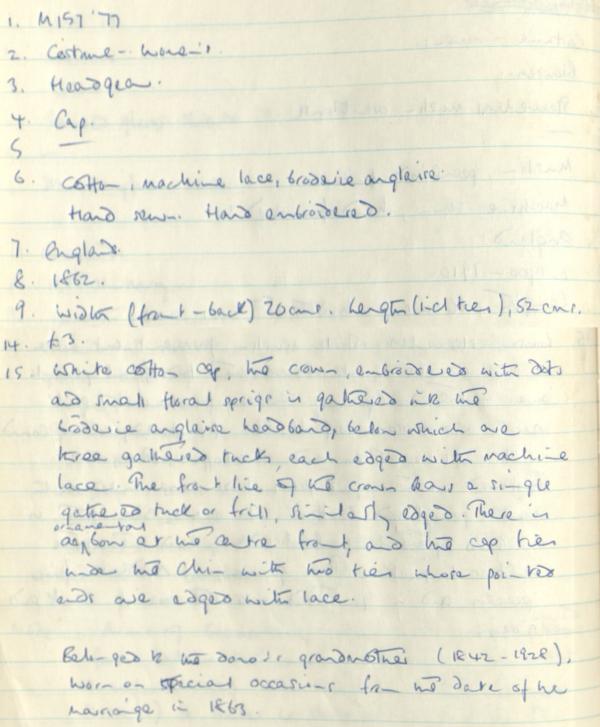 1. M157 '77
2. Costume - women's.
3. Headgear.
4. Cap.
5
6. Cotton, machine lace, broderie anglaise.
Hand sewn. Hand embroidered.
7. England.
8. 1862.
9. Width (front-back) 20cms. Length (incl ties), 52 cms.
14. £3.
15 White cotton cap, the crown, embroidered with dots
and small floral sprigs is gathered into the
broderie anglaise headband, below which are
three gathered tucks, each edged with machine
lace. The front line of the crown bears a single
gathered tuck or frill, similarly edged. There is
an ornamental bow at the centre front, and the cap ties
under the chin with two ties whose pointed
ends are edged with lace.
Belonged to the donor's grandmother (1842-1928).
Worn on special occasions from the date of her
marriage in 1863.